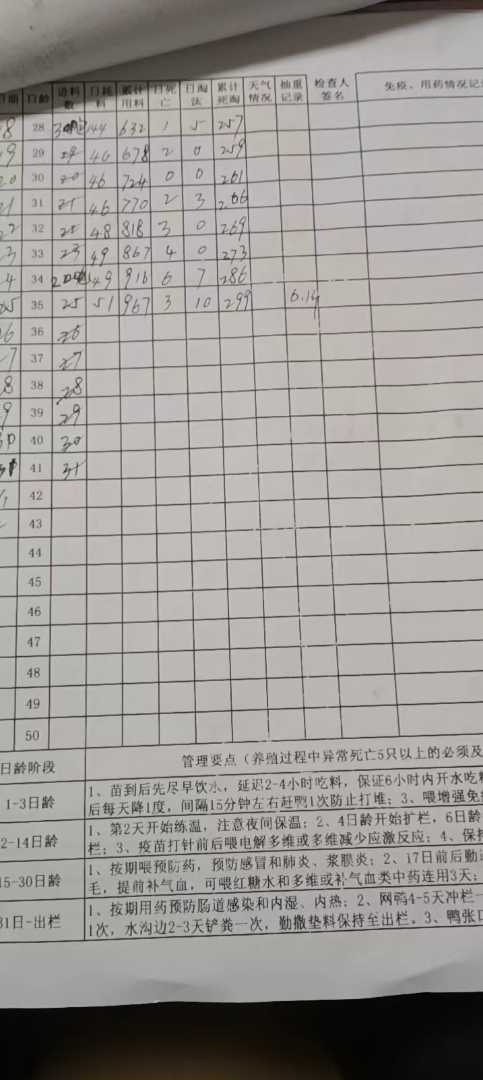 日期 日龄 进料数 日耗料 累计用料 日死亡 日淘汰 累计死淘 天气情况 抽重记录 检查人签名 免疫、用药情况记
8 28 44 632 1 5 257
9 29 46 678 2 0 259
20 30 20 46 724 0 0 261
21 31 21 46 770 2 3 266
22 32 48 818 3 0 269
3 33 23 49 867 4 0 273
4 34 49 916 6 7 286
25 35 25 51 967 3 10 299
26 36 26
7 37 27
8 38 28
9 39 29
30 40 30
41 31
42
43
44
45
46
47
48
49
50
日龄阶段 管理要点（养殖过程中异常死亡5只以上的必须及
1-3日龄 1、苗到后先尽早饮水，延迟2-4小时吃料，保证6小时内开水吃料
后每天降1度，间隔15分钟左右赶鸭1次防止打堆；3、喂增强免
2-14日龄 1、第2天开始练温，注意夜间保温；2、4日龄开始扩栏，6日龄
栏；3、疫苗打针前后喂电解多维或多维减少应激反应；4、保持
15-30日龄 1、按期喂预防药，预防感冒和肺炎、浆膜炎；2、17日前后勤
毛，提前补气血，可喂红糖水和多维或补气血类中药连用3天；
31日-出栏 1、按期用药预防肠道感染和内湿、内热；2、网鸭4-5天冲栏一
1次，水沟边2-3天铲粪一次，勤撒垫料保持至出栏。3、鸭张口